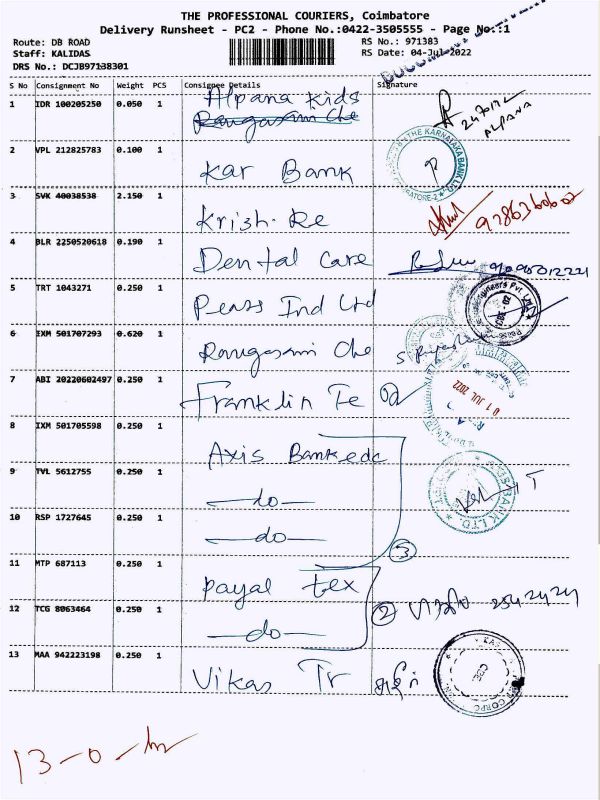 THE PROFESSIONAL COURIERS, Coimbatore
Delivery Runsheet - PC2 - Phone No.:0422-3505555 - Page No.:1
Route: DB ROAD
RS No.: 971383
Staff: KALIDAS
RS Date: 04-Jul-2022
DRS No.: DCJB97138301
S No Consignment No Weight PCS Consignee Details Signature
1 IDR 100205250 0.050 1 Alpana Kids
Rangasami Che
ALPANA
2 VPL 212825783 0.100 1 Kar Bank
THE KARNATAKA BANK LTD.
3 SVK 40038538 2.150 1 Krish. Re
4 BLR 2250520618 0.190 1 Dental Care
5 TRT 1043271 0.250 1 Pears Ind Ltd
6 IXM 501707293 0.620 1 Rangasami Che
7 ABI 20220602497 0.250 1 Franklin Te
01 JUL 2022
8 IXM 501705598 0.250 1 Axis Bank
9 TVL 5612755 0.250 1 —do—
BANK LTD.
10 RSP 1727645 0.250 1 —do—
3
11 MTP 687113 0.250 1 payal tex
2
12 TCG 8063464 0.250 1 —do—
13 MAA 942223198 0.250 1 Vikas Tr
13-0-